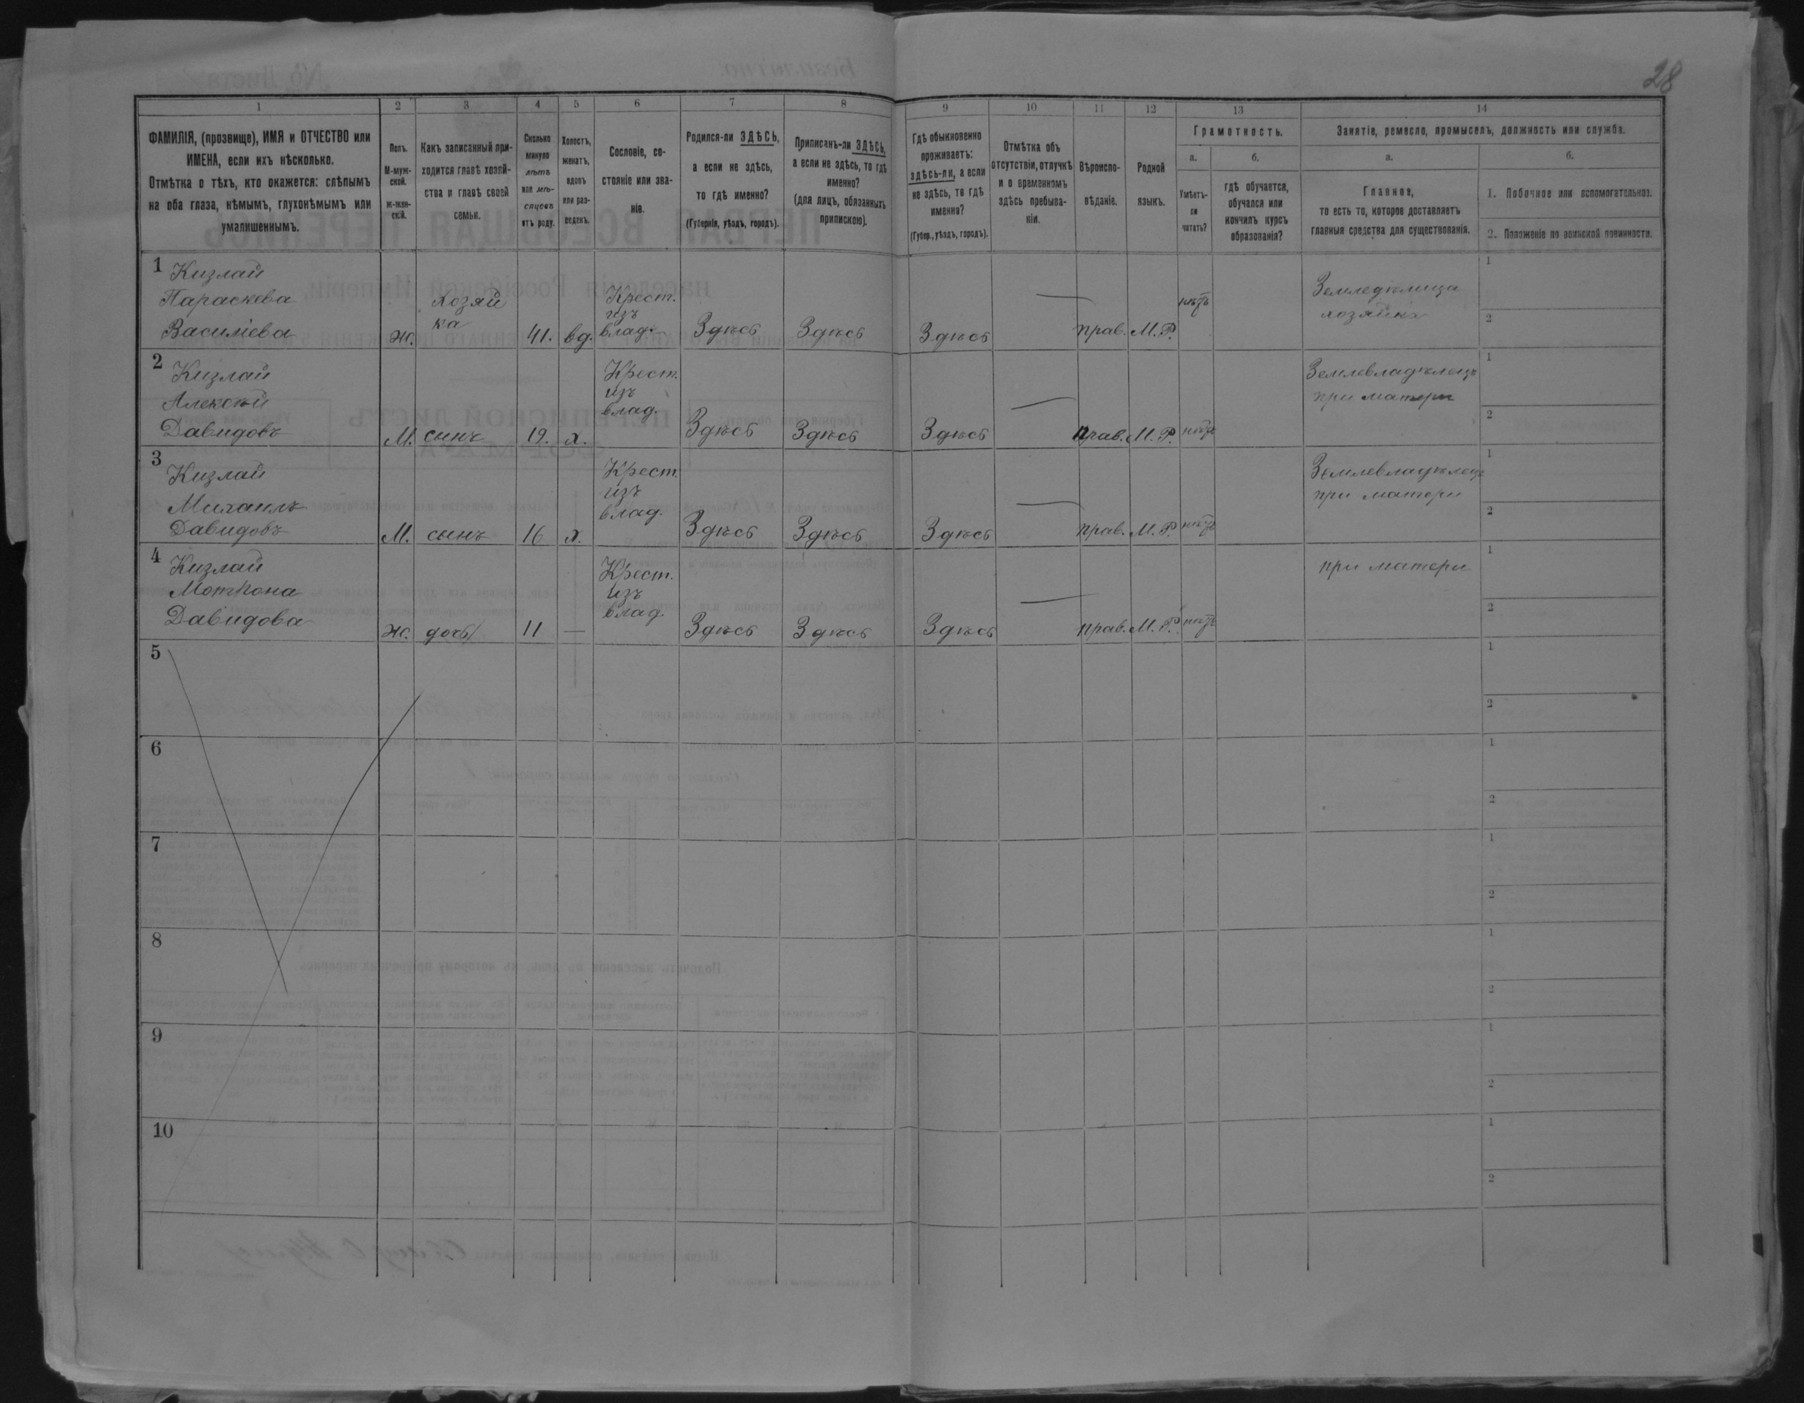 28
1 2 3 4 5 6 7 8 9 10 11 12 13 14
ФАМИЛІЯ, (прозвище), ИМЯ и ОТЧЕСТВО или
ИМЕНА, если ихъ нѣсколько.
Отмѣтка о тѣхъ, кто окажется: слѣпымъ
на оба глаза, нѣмымъ, глухонѣмымъ или
умалишеннымъ.
Полъ.
М-муж-
ской.
ж-жен-
скій.
Какъ записанный при-
ходится главѣ хозяй-
ства и главѣ своей
семьи.
Сколько
минуло
лѣтъ
или мѣ-
сяцевъ
отъ роду.
Холостъ,
женатъ,
вдовъ
или раз-
веденъ.
Сословіе, со-
стояніе или зва-
ніе.
Родился-ли ЗДѢСЬ,
а если не здѣсь,
то гдѣ именно?
(Губернія, уѣздъ, городъ).
Приписанъ-ли ЗДѢСЬ,
а если не здѣсь, то гдѣ
именно?
(для лицъ, обязанныхъ
припискою).
Гдѣ обыкновенно
проживаетъ:
здѣсь-ли, а если
не здѣсь, то гдѣ
именно?
(Губер., уѣздъ, городъ).
Отмѣтка объ
отсутствіи, отлучкѣ
и о временномъ
здѣсь пребыва-
ніи.
Вѣроиспо-
вѣданіе.
Родной
языкъ.
Грамотность.
а.
Умѣетъ-
ли
читать?
б.
гдѣ обучается,
обучался или
кончилъ курсъ
образованія?
Занятіе, ремесло, промыселъ, должность или служба.
а.
Главное,
то есть то, которое доставляетъ
главныя средства для существованія.
б.
1. Побочное или вспомогательное.
2. Положеніе по воинской повинности.
1 Кизлай
Параскева
Василіева
ж.
хозяй
ка
41.
вд.
Крест.
изъ
влад.
Здѣсь
Здѣсь
Здѣсь
—
прав.
М.Р.
нѣтъ
Земледѣлица
хозяйка
1
2
2 Кизлай
Алексѣй
Давидовъ
М.
сынъ
19.
х.
Крест.
изъ
влад.
Здѣсь
Здѣсь
Здѣсь
—
прав.
М.Р.
нѣтъ
Землевладѣлецъ
при матери
1
2
3 Кизлай
Михаилъ
Давидовъ
М.
сынъ
16
х.
Крест.
изъ
влад.
Здѣсь
Здѣсь
Здѣсь
—
прав.
М.Р.
нѣтъ
Землевладѣлецъ
при матери
1
2
4 Кизлай
Мотрона
Давидова
ж.
дочь
11
—
Крест.
изъ
влад.
Здѣсь
Здѣсь
Здѣсь
—
прав.
М.Р.
нѣтъ
при матери
1
2
5
1
2
6
1
2
7
1
2
8
1
2
9
1
2
10
1
2